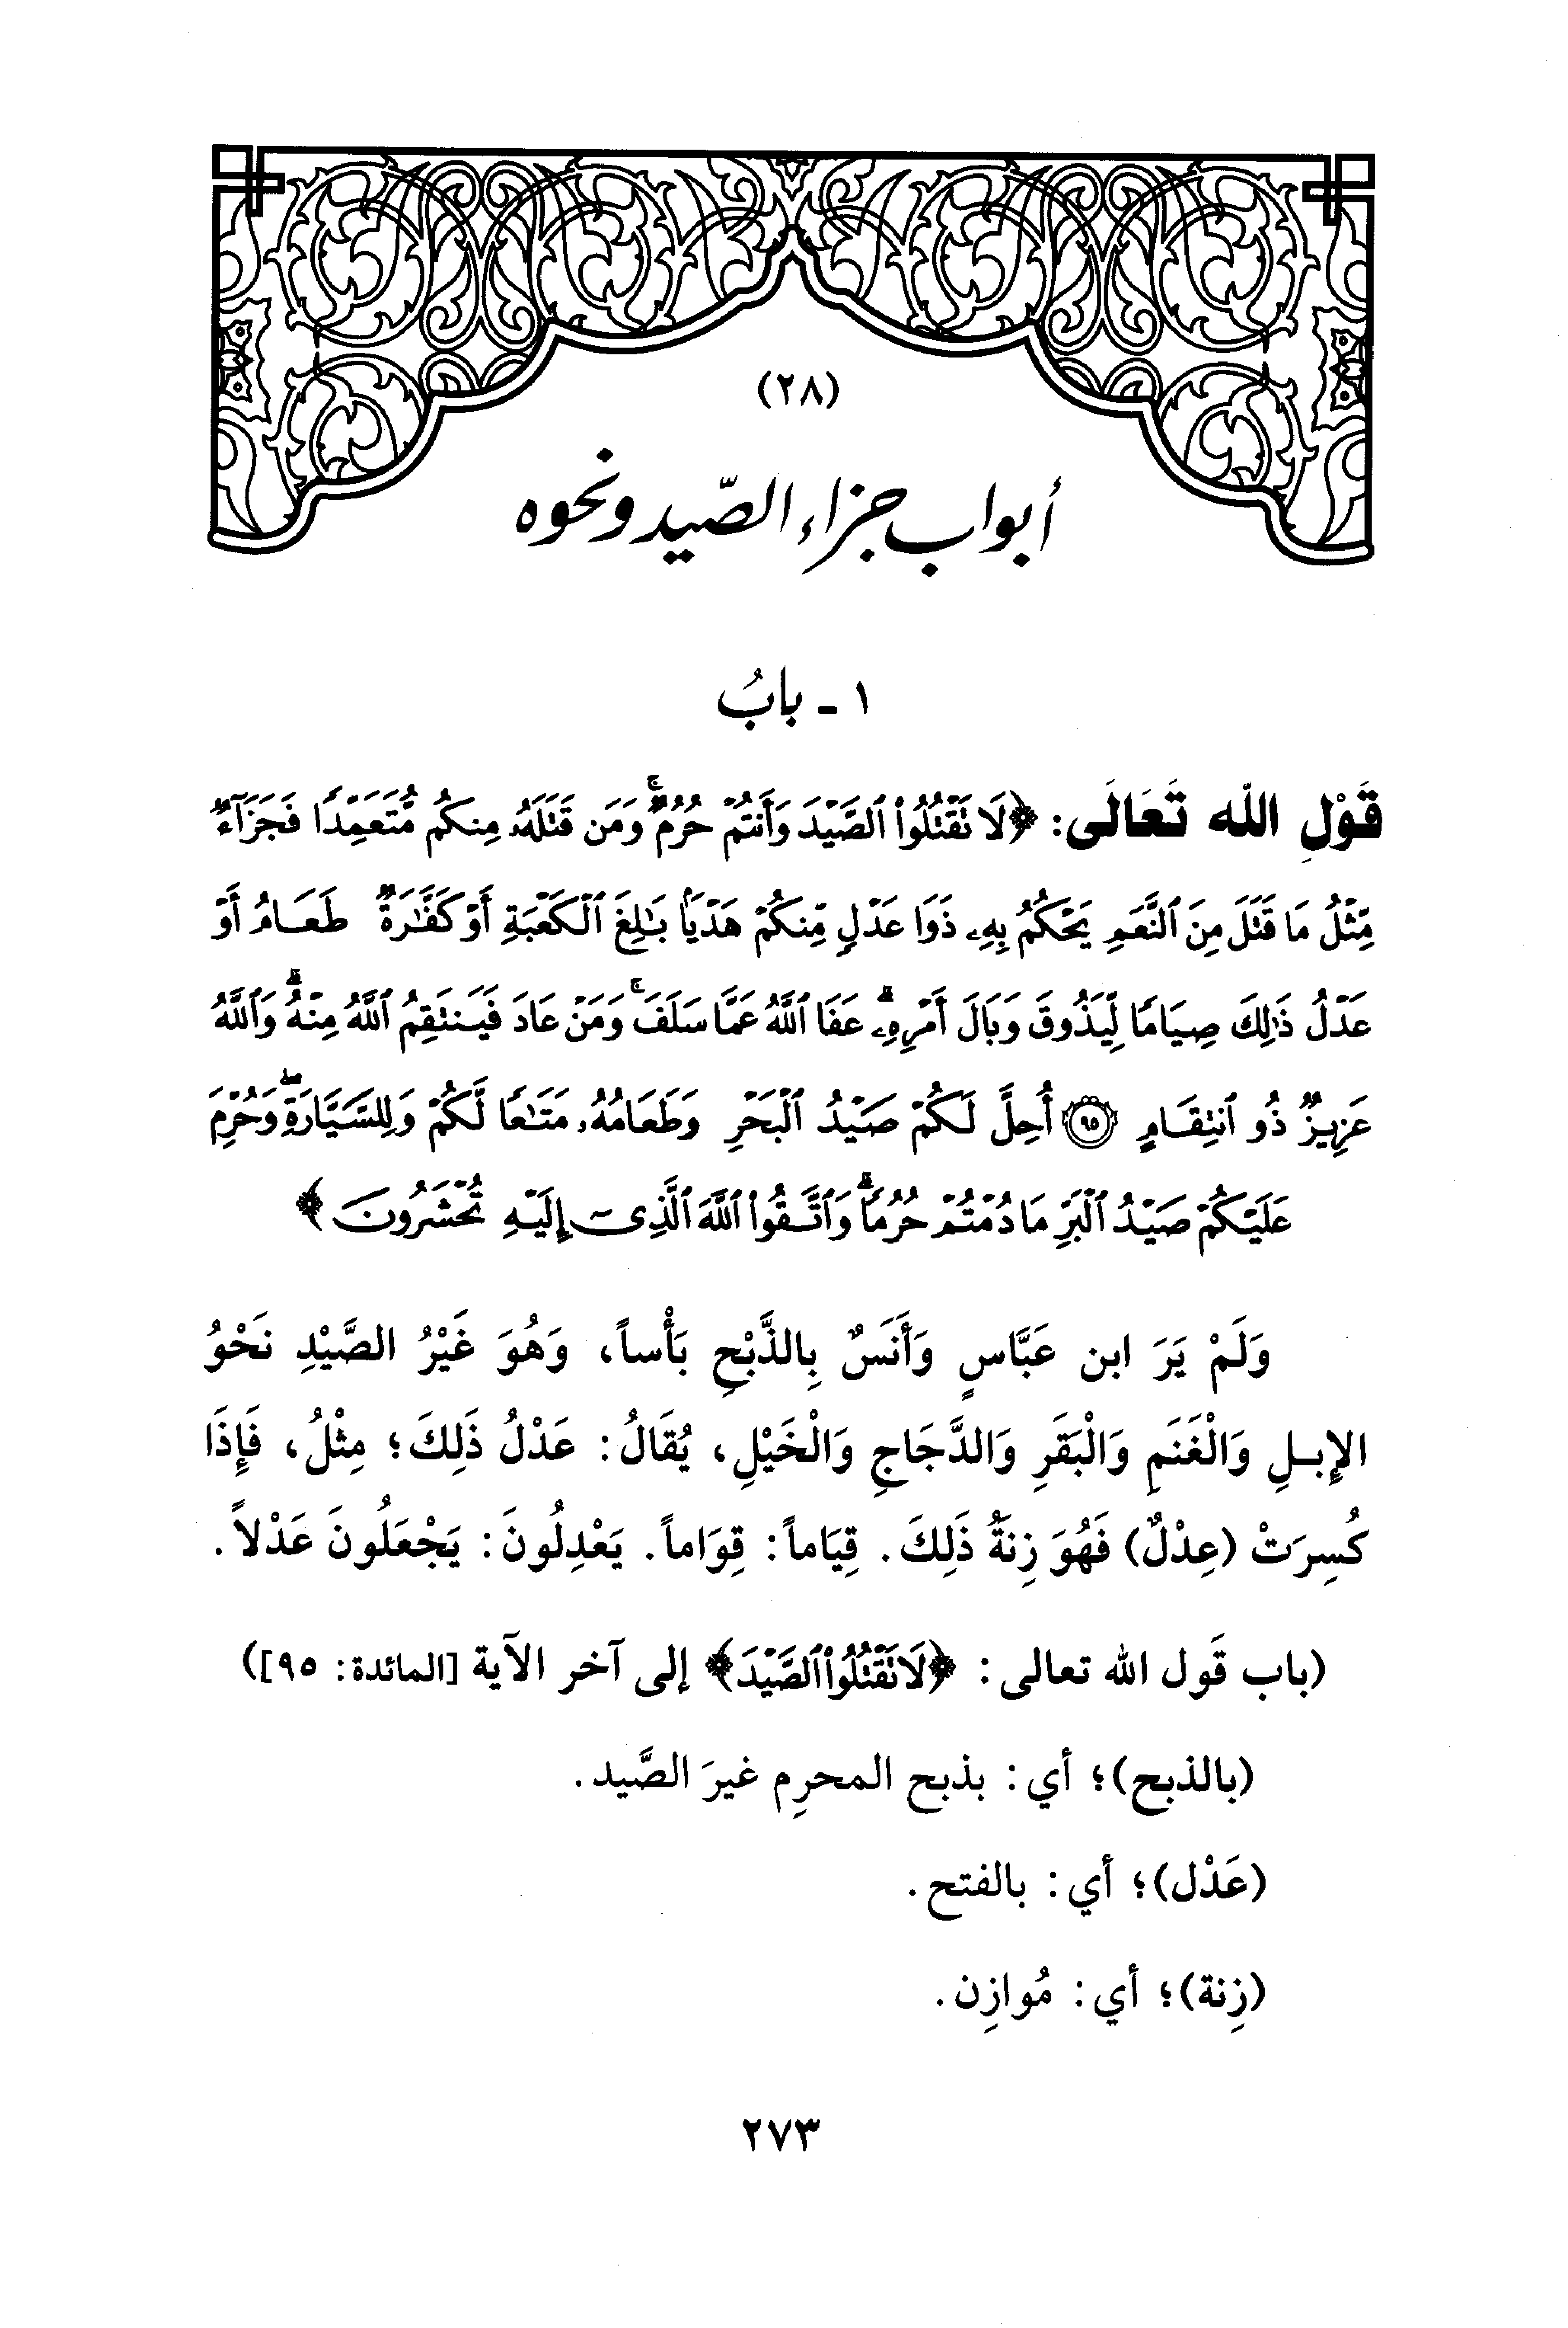 (٢٨)
أبواب جزاء الصّيد ونحوه
١ - بابُ
قَوْلِ اللَّه تَعَالَى: ﴿لَا تَقْتُلُوا۟ ٱلصَّيْدَ وَأَنتُمْ حُرُمٌ ۚ وَمَن قَتَلَهُۥ مِنكُم مُّتَعَمِّدًا فَجَزَآءٌ
مِّثْلُ مَا قَتَلَ مِنَ ٱلنَّعَمِ يَحْكُمُ بِهِۦ ذَوَا عَدْلٍ مِّنكُمْ هَدْيًۢا بَـٰلِغَ ٱلْكَعْبَةِ أَوْ كَفَّـٰرَةٌ طَعَامُ أَوْ
عَدْلُ ذَٰلِكَ صِيَامًا لِّيَذُوقَ وَبَالَ أَمْرِهِۦ ۗ عَفَا ٱللَّهُ عَمَّا سَلَفَ ۚ وَمَنْ عَادَ فَيَنتَقِمُ ٱللَّهُ مِنْهُ ۗ وَٱللَّهُ
عَزِيزٌ ذُو ٱنتِقَامٍ ۝٩٥ أُحِلَّ لَكُمْ صَيْدُ ٱلْبَحْرِ وَطَعَامُهُۥ مَتَـٰعًا لَّكُمْ وَلِلسَّيَّارَةِ ۖ وَحُرِّمَ
عَلَيْكُمْ صَيْدُ ٱلْبَرِّ مَا دُمْتُمْ حُرُمًا ۗ وَٱتَّقُوا۟ ٱللَّهَ ٱلَّذِىٓ إِلَيْهِ تُحْشَرُونَ﴾
وَلَمْ يَرَ ابن عَبَّاسٍ وَأَنَسٌ بِالذَّبْحِ بَأْساً، وَهُوَ غَيْرُ الصَّيْدِ نَحْوُ
الإِبلِ وَالْغَنَمِ وَالْبَقَرِ وَالدَّجَاجِ وَالْخَيْلِ، يُقَالُ: عَدْلُ ذَلِكَ؛ مِثْلُ، فَإِذَا
كُسِرَتْ (عِدْلٌ) فَهُوَ زِنَةُ ذَلِكَ. قِيَاماً: قِوَاماً. يَعْدِلُونَ: يَجْعَلُونَ عَدْلاً.
(باب قَول الله تعالى: ﴿لَا تَقْتُلُوا۟ ٱلصَّيْدَ﴾ إلى آخر الآية [المائدة: ٩٥])
(بالذبح)؛ أي: بذبح المحرِم غيرَ الصَّيد.
(عَدْل)؛ أي: بالفتح.
(زِنة)؛ أي: مُوازِن.
٢٧٣